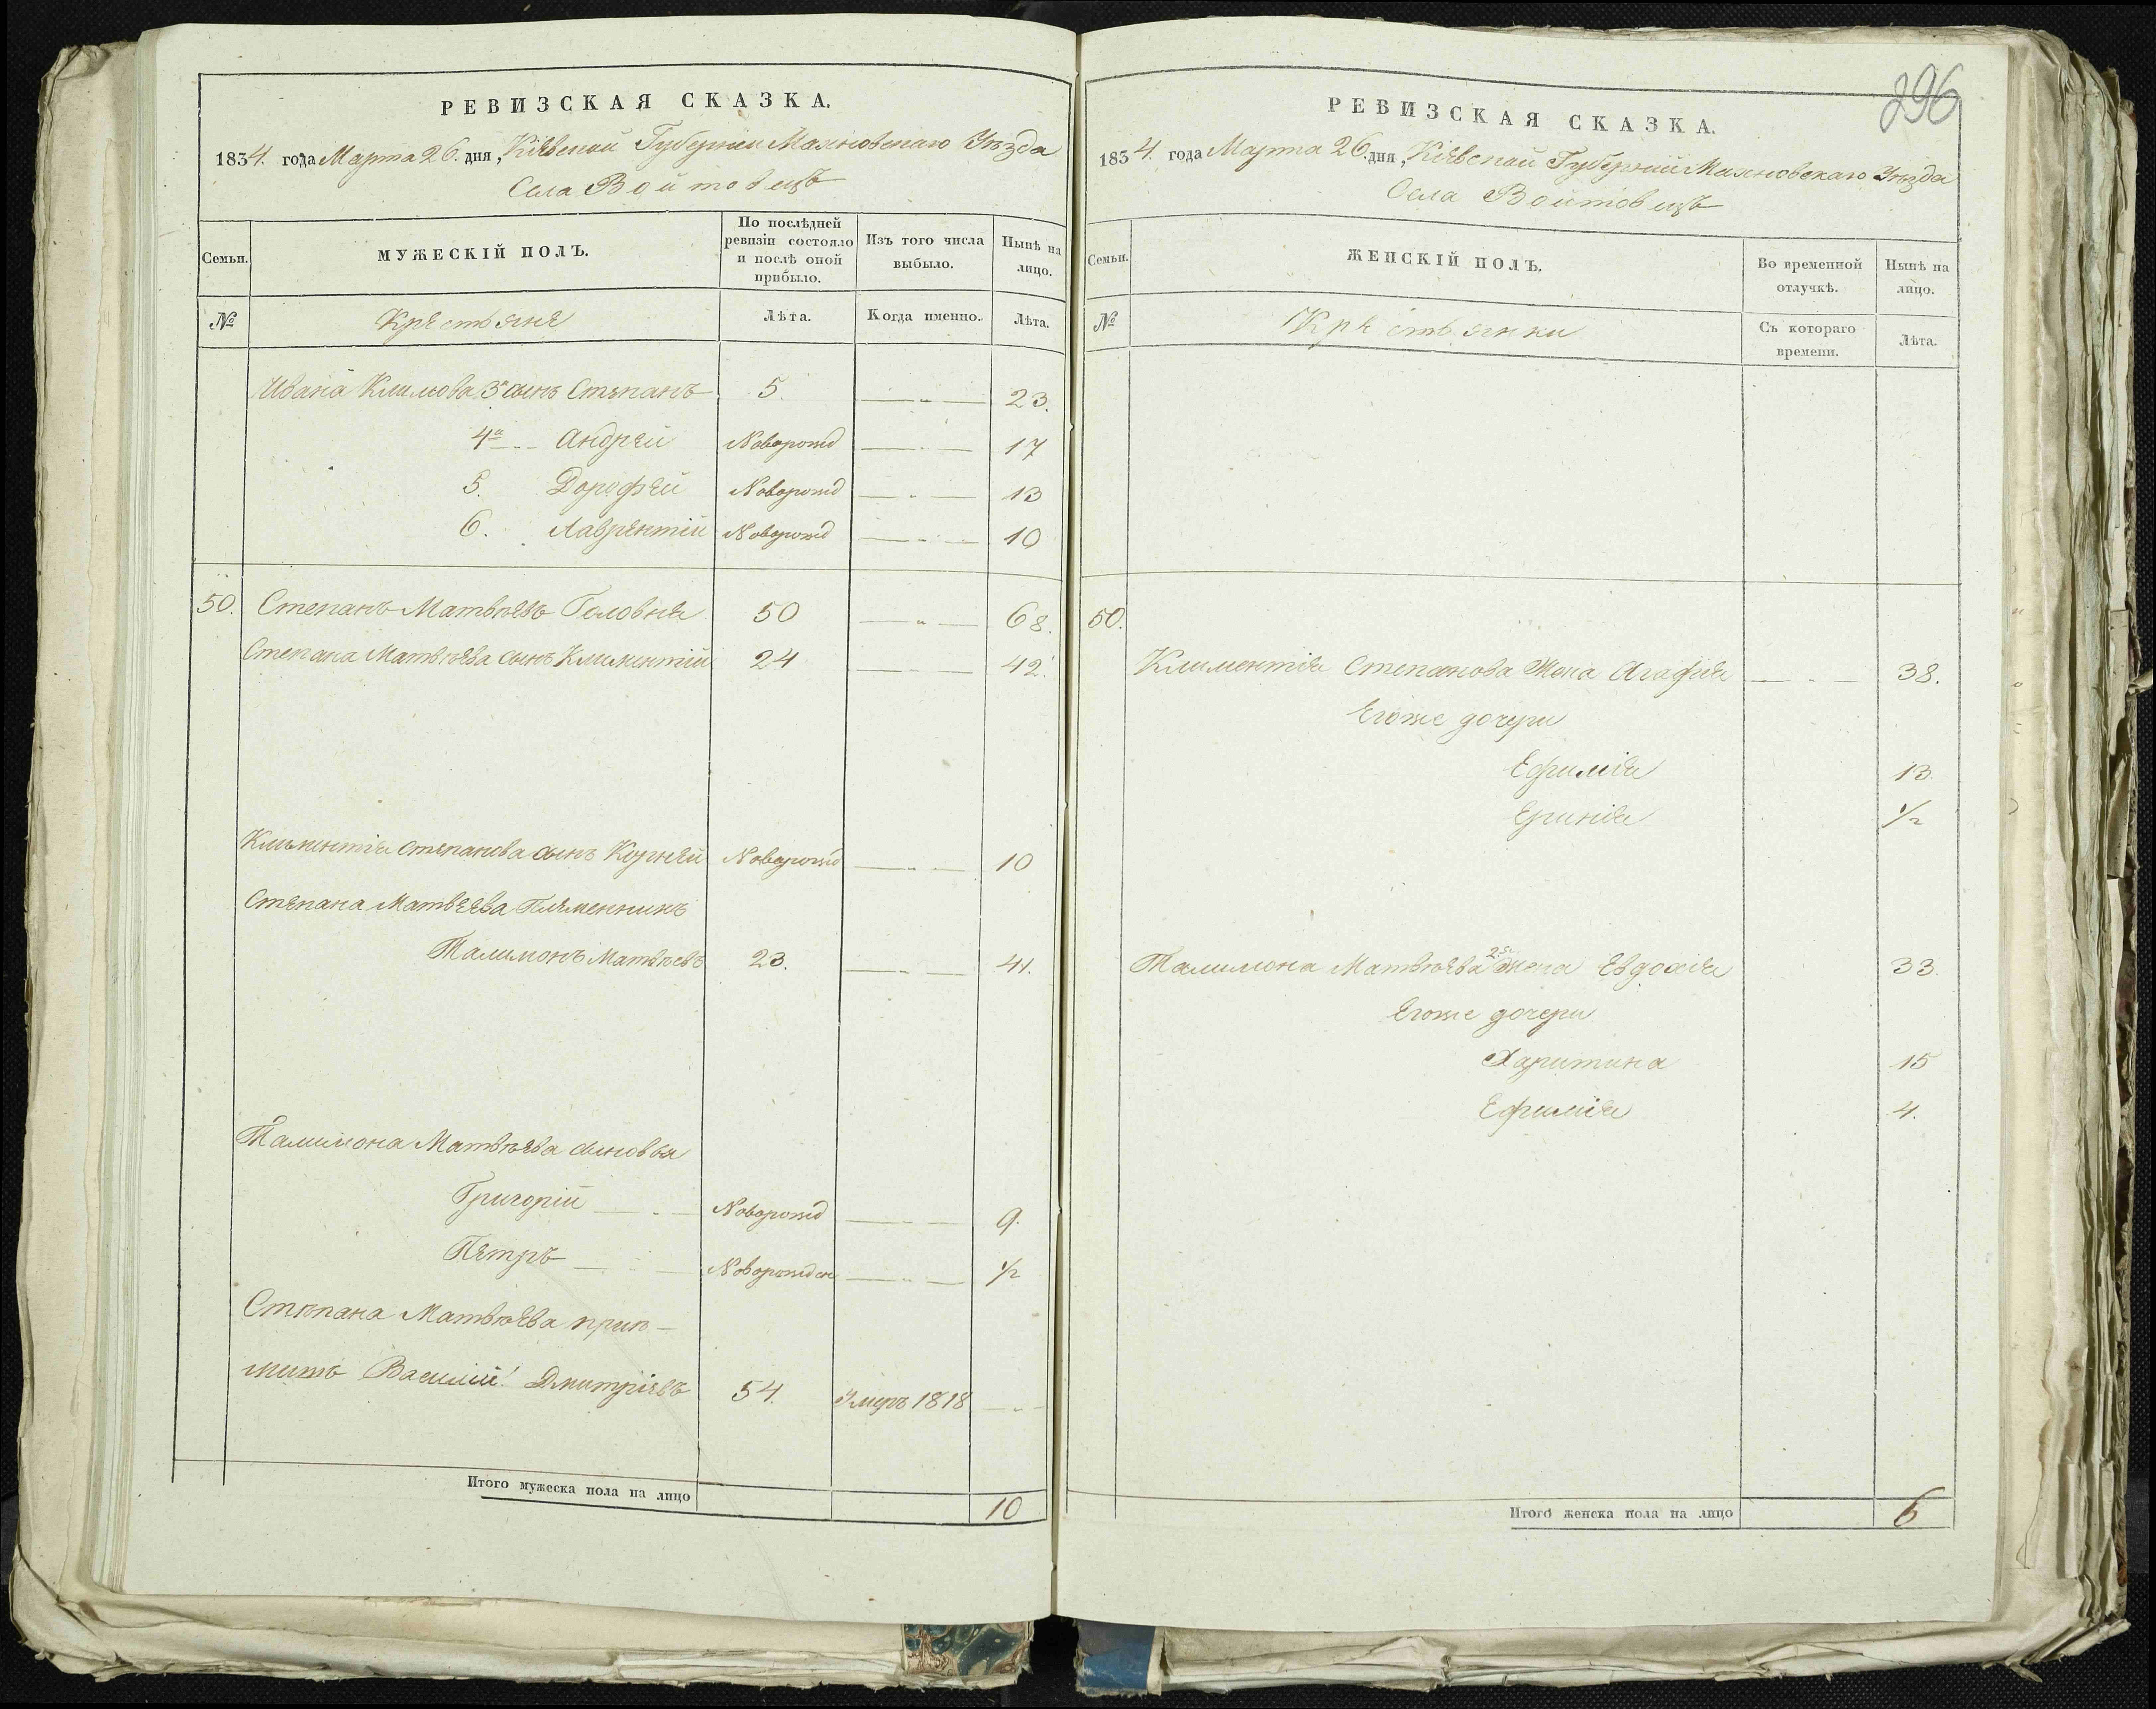 РЕВИЗСКАЯ СКАЗКА.
1834. года Марта 26. дня, Кіевской Губерніи Махновскаго Уѣзда
Села Войтовецъ
Семьи.
МУЖЕСКІЙ ПОЛЪ.
По послѣдней ревизіи состояло и послѣ оной прибыло.
Изъ того числа выбыло.
Нынѣ на лицо.
№
Крестьяне
Лѣта.
Когда именно.
Лѣта.
Ивана Климова 3й сынъ Степанъ 5. — „ — 23.
4й — „ — Андрей Новорожд — „ — 17
5. Дорофей Новорожд — „ — 13
6. Лаврентій Новорожд — „ — 10
50. Степанъ Матвѣевъ Головня 50 — „ — 68.
Степана Матвѣева сынъ Климентій 24 — „ — 42.
Климентія Степанова сынъ Корней Новорожд — „ — 10
Степана Матвеева Племенникъ
Талимонъ Матвѣевъ 23. — „ — 41.
Талимона Матвѣева сыновья
Григорій — „ — Новорожд — „ — 9.
Петръ — „ — Новорожден — „ — 1/2
Степана Матвѣева
Василій Дмитріевъ 54. Умеръ 1818 — „ —
Итого мужеска пола на лицо 10
296
РЕВИЗСКАЯ СКАЗКА.
1834. года Марта 26. дня, Кіевской Губерніи Махновскаго Уѣзда
Села Войтовецъ
Семьи.
ЖЕНСКІЙ ПОЛЪ.
Во временной отлучкѣ.
Нынѣ на лицо.
№
Крестьянки
Съ котораго времени.
Лѣта.
50.
Климентія Степанова Жена Агафія — „ — 38.
Егоже дочери
Ефимія 13.
Ериніа 1/2
Талимона Матвѣева 2я жена Евдокія 33.
Егоже дочери
Харитина 15
Ефимія 4.
Итого женска пола на лицо 6